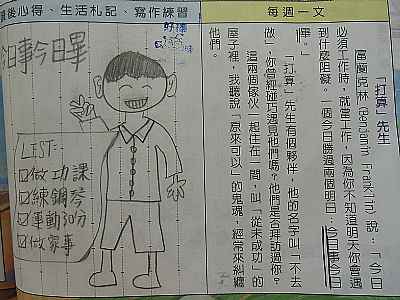 後心得、生活札記、寫作練習
每週一文
「打算」先生
富蘭克林(Benjamin Franklin)說:「今
必須工作時,就當工作,因為你不知道明天你會遇
到什麼阻礙。一個今日勝過兩個明日:今日事今日
畢。」
「打算」先生有個夥伴,他的名字叫「不去
做」,你曾經碰巧遇見他們嗎?他們是否拜訪過你?
這兩個傢伙一起住在一間,叫「從未成功」的
屋子裡,我聽說「原來可以」的鬼魂,經常來糾纏
他們。
好棒
今日事今日畢
LIST:
☑做功課
☑練鋼琴
☑運動30分
☑做家事